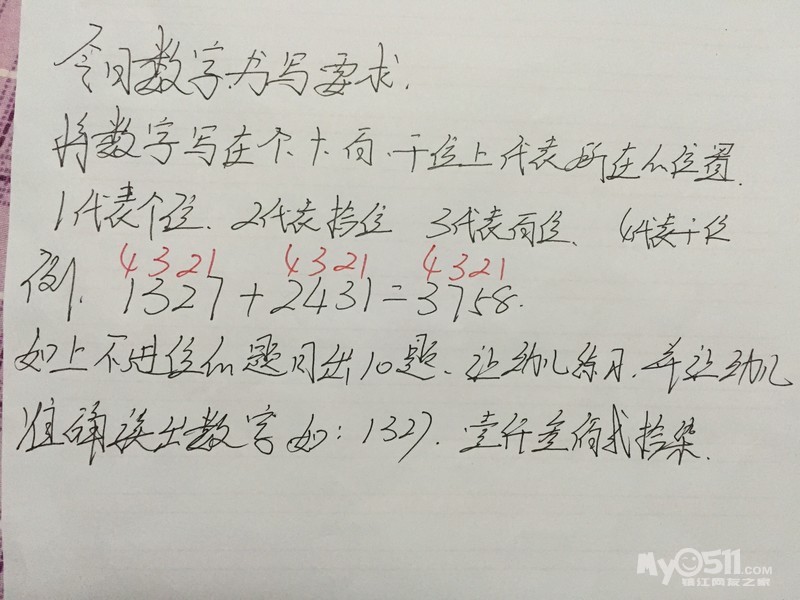 今日数字书写要求.
将数字写在个、十、百、千位上代表所在的位置.
1代表个位. 2代表拾位 3代表百位. 4代表千位
4321 4321 4321
例. 1327+2431=3758.
如上不进位的题目出10题、让幼儿练习.并让幼儿
准确读出数字如：1327. 壹仟叁佰贰拾柒.
My0511.COM
镇江网友之家